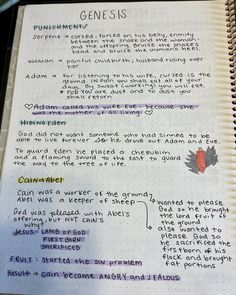 GENESIS
PUNISHMENTS
Serpent → cursed, forced on his belly, enmity
between the snake and the woman-
and the offspring bruise the snake's
head and bruise the womans heel
Woman → painful childbirth, husband ruling over
her
Adam → for listening to his wife, cursed is the
ground. In pain you shall eat all of your
days. By sweat (working) you will eat.
For you are dust and to dust you
shall return
♡ Adam called his wife Eve because she
was the mother of all living ♡
Hiding Eden
God did not want someone who had sinned to be
able to live forever so he drove out Adam and Eve.
To guard Eden he placed a cherubim
and a flaming sword to the east to guard
the way to the tree of life.
Cain & Abel
Cain was a worker of the ground
Abel was a keeper of sheep
God was pleased with Abel's
offering, but NOT CAIN'S
Why?
Jesus: LAMB OF GOD
FIRST BORN
SACRIFICED
wanted to please
God so he bought
the Lord fruit of
the ground
also wanted to
please God so he
sacrificed the
first born of his
flock and brought
fat portions
FRUIT: started the sin problem
Result → Cain became ANGRY and JEALOUS